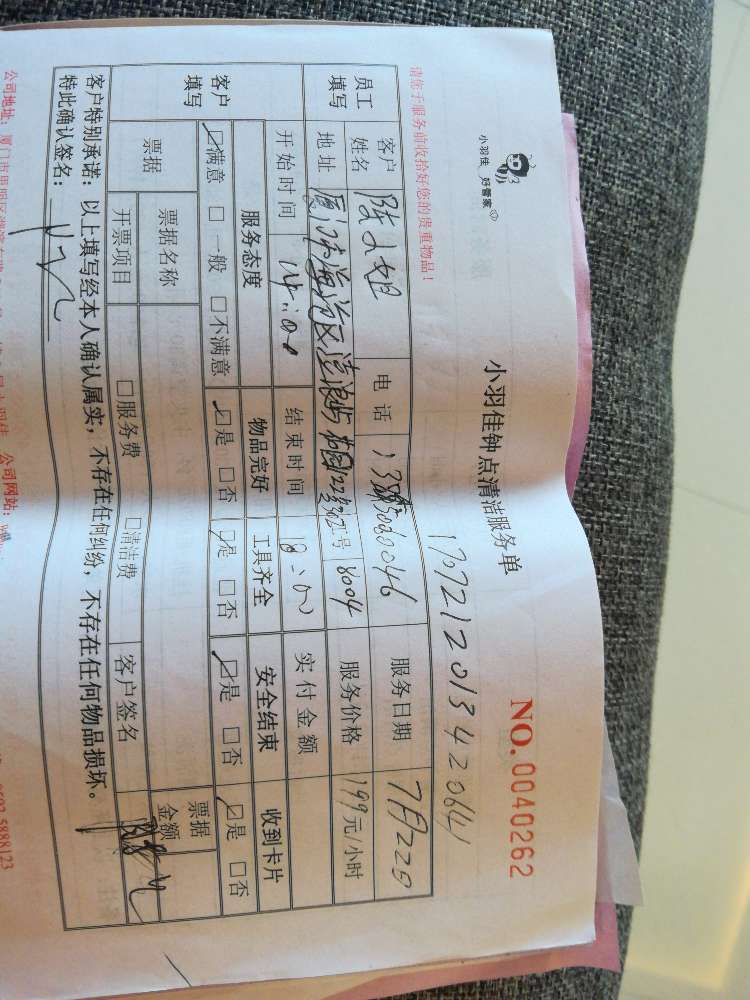 小羽佳 好管家
小羽佳钟点清洁服务单
NO. 0040262
1707212013420641
请您于服务前收拾好您的贵重物品!
员工填写 客户姓名 陈小姐 电话 服务日期 7月22日
地址 厦门市海沧区 工号 8004 服务价格 199元/小时
开始时间 14:00 结束时间 18:00 实付金额
客户填写 服务态度 物品完好 工具齐全 安全结束 收到卡片
☑满意 □一般 □不满意 ☑是 □否 ☑是 □否 ☑是 □否 ☑是 □否
票据 票据名称 票据金额
开票项目 □服务费 □清洁费 客户签名
客户特别承诺:以上填写经本人确认属实,不存在任何纠纷,不存在任何物品损坏。
特此确认签名:
公司地址:厦门市思明区 公司网站: 5888123